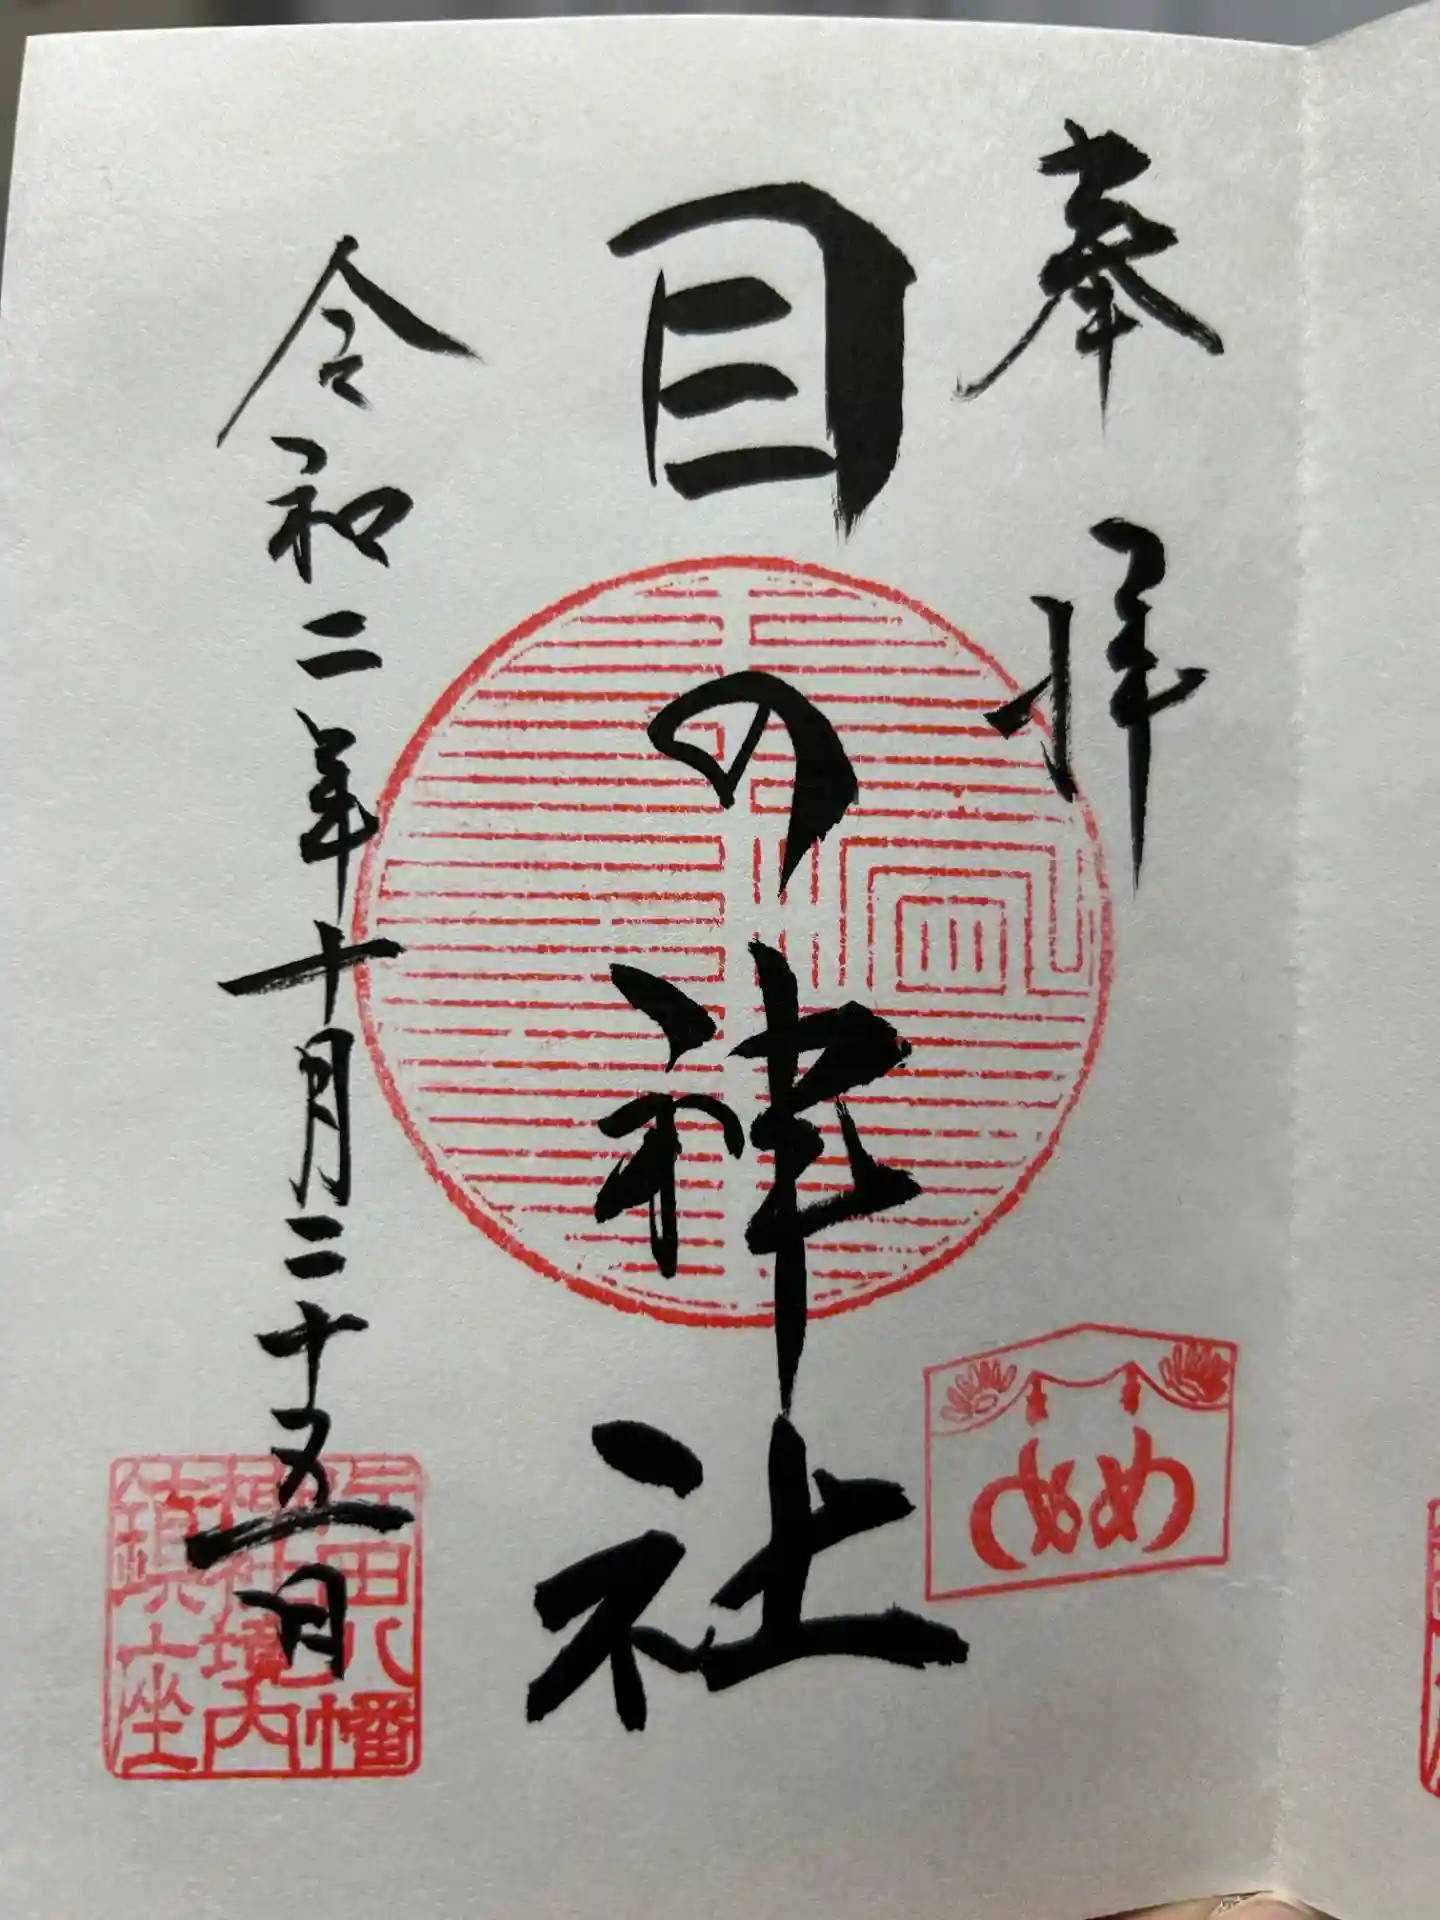 奉拝
目の神社
令和二年十月二十五日
め
八幡
神社境内
鎮座